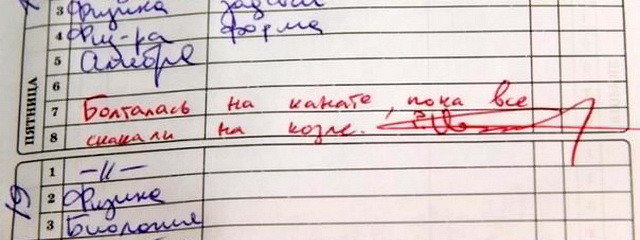 3 Физика задачи
4 Физ-ра форма
5 Алгебра
6
7 Болталась на канате, пока все
8 скакали на козле.
ПЯТНИЦА
1 -//-
2 Физика
3 Биология